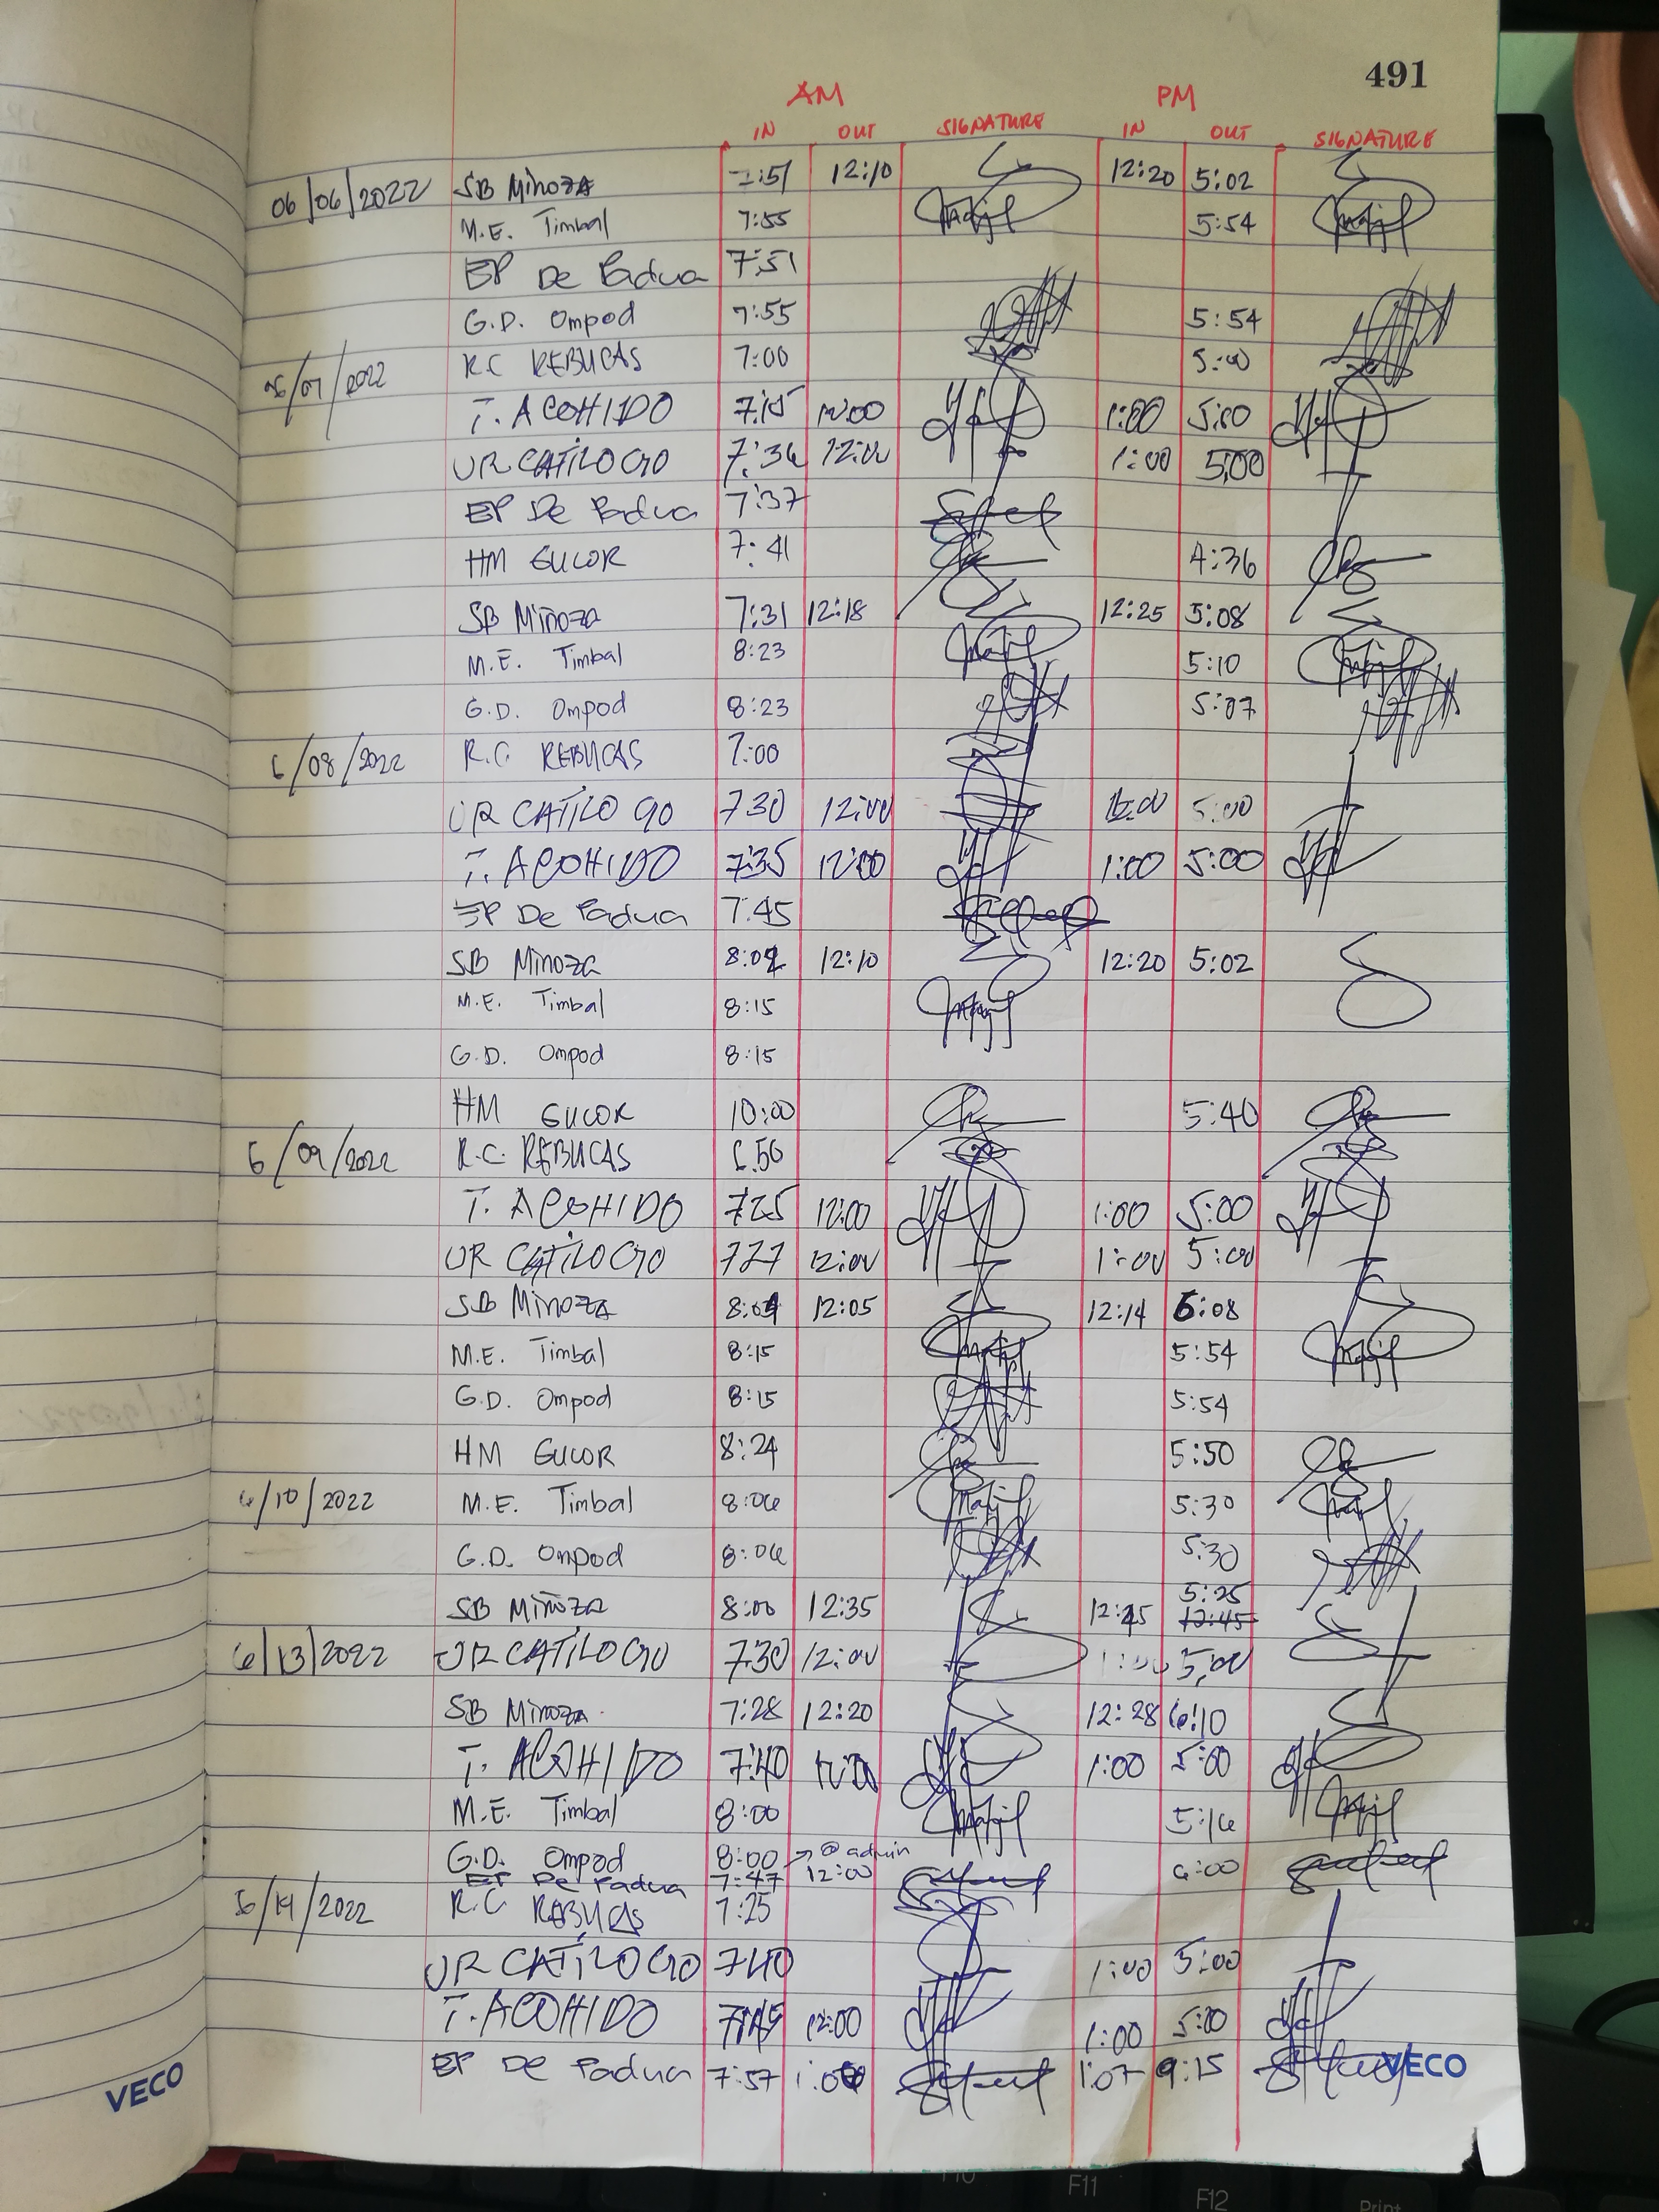 491
AM PM
IN OUT SIGNATURE IN OUT SIGNATURE
06/06/2022 SB Minoza 7:51 12:10 12:20 5:02
M.E. Timbal 7:55 5:54
EP De Padua 7:51
G.D. Ompod 7:55 5:54
R.C REBUCAS 7:00 5:00
06/07/2022
T. ACOHIDO 7:15 12:00 1:00 5:00
UR CATILOGO 7:36 12:00 1:00 5:00
EP De Padua 7:37
HM GUCOR 7:41 4:36
SB Minoza 7:31 12:18 12:25 5:08
M.E. Timbal 8:23 5:10
G.D. Ompod 8:23 5:07
6/08/2022 R.C. REBUCAS 7:00
UR CATILOGO 730 12:00 5:00
T. ACOHIDO 7:35 12:00 1:00 5:00
EP De Padua 7:45
SB Minoza 12:10 12:20 5:02
M.E. Timbal 8:15
G.D. Ompod 8:15
HM GUCOR 10:00 5:40
6/09/2022 R.C. REBUCAS 6:50
T. ACOHIDO 725 12:00 1:00 5:00
UR CATILOGO 727 12:00 1:00 5:00
SB Minoza 12:05 12:14 6:08
M.E. Timbal 8:15 5:54
G.D. Ompod 8:15 5:54
HM GUCOR 8:24 5:50
6/10/2022 M.E. Timbal 8:06 5:30
G.D. Ompod 8:06 5:30
5:25
SB Miñoza 8:00 12:35 12:45 12:45
6/13/2022 UR CATILOGO 730 12:00 1:00 5:00
SB Minoza 7:28 12:20 12:28 6:10
T. ACOHIDO 7:40 12:00 1:00 5:00
M.E. Timbal 8:00 5:16
G.D. Ompod 8:00 → @ admin
EP De Padua 7:47 12:00 6:00
6/14/2022 R.C REBUCAS 7:25
UR CATILOGO 740 1:00 5:00
T. ACOHIDO 12:00 1:00 5:00
EP De Padua 7:57 1:07 9:15
VECO VECO
F10 F11 F12 Print